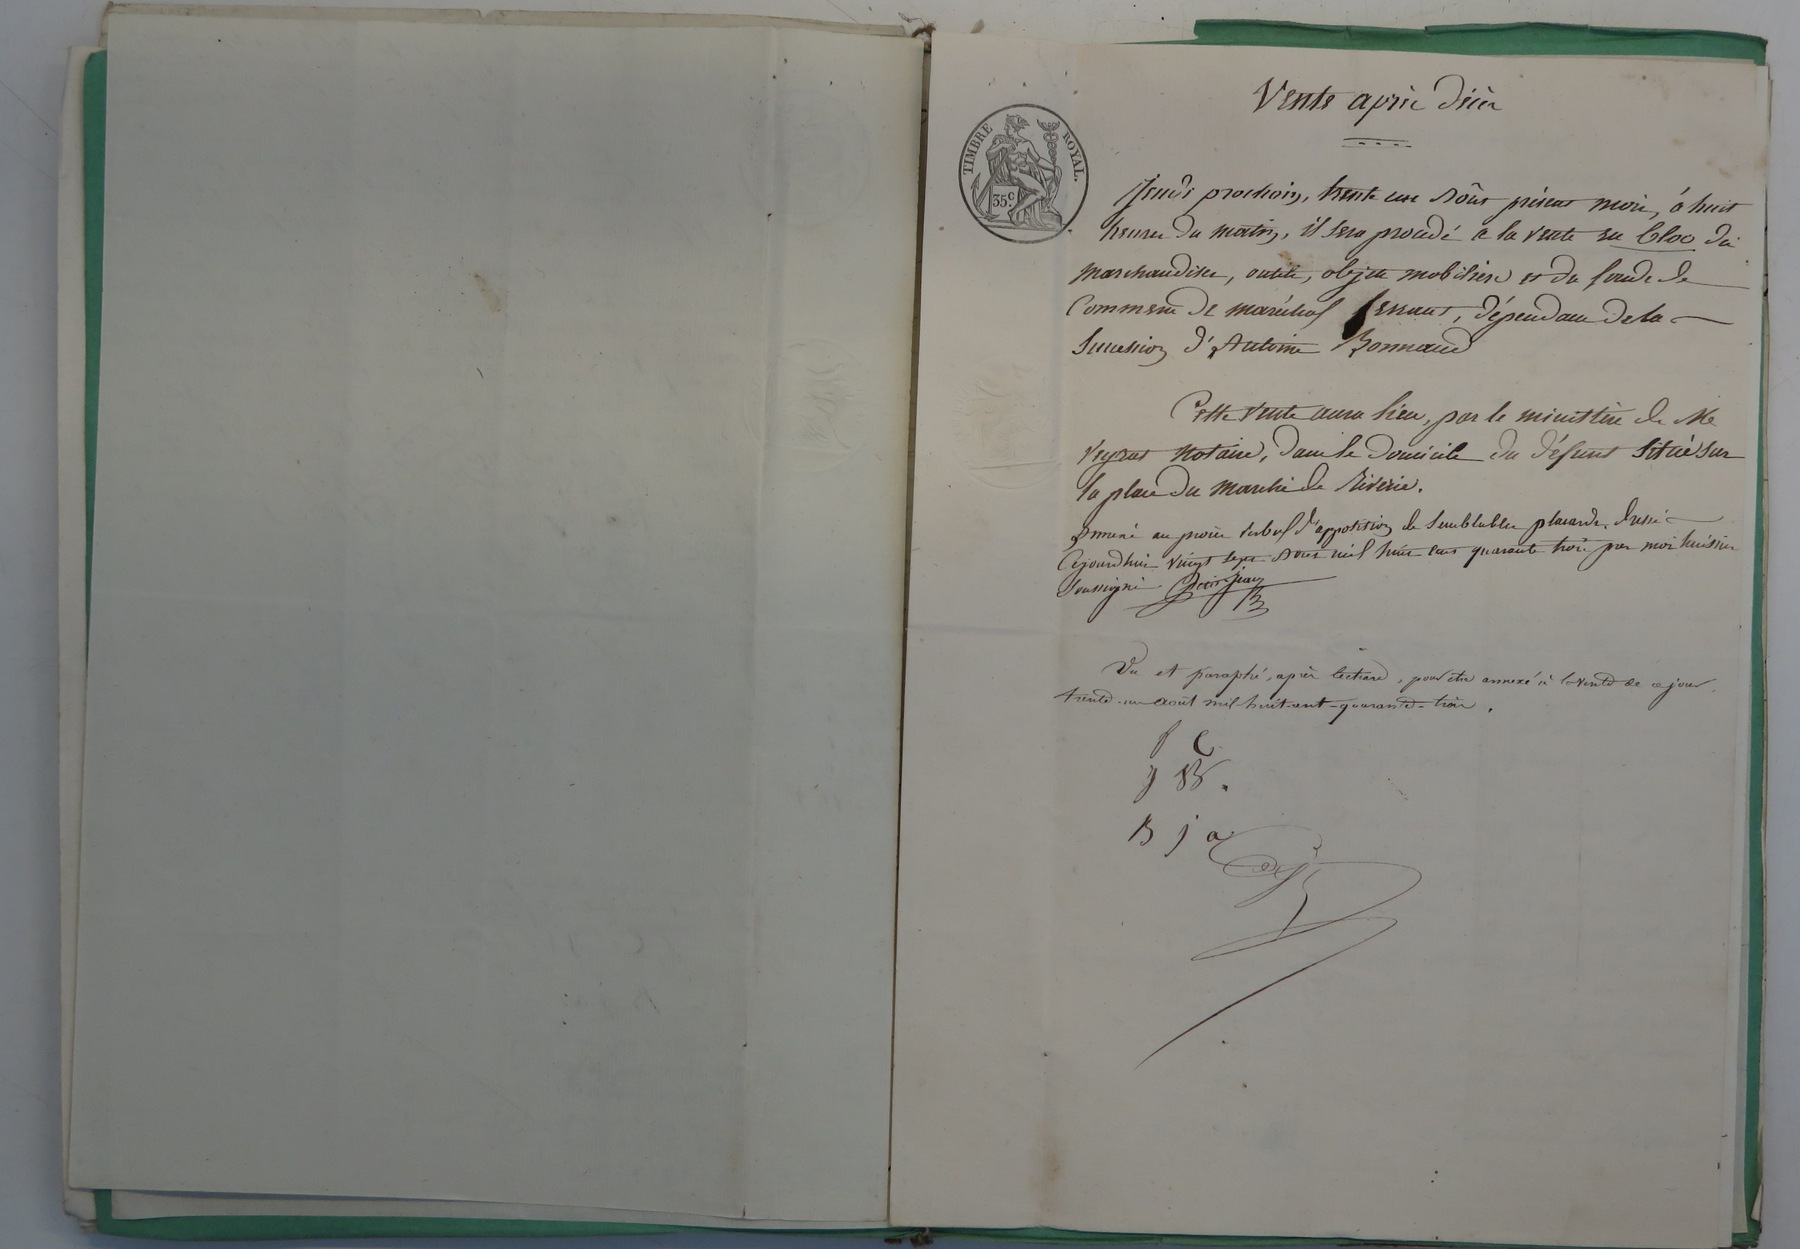 Vente après décès
TIMBRE ROYAL.
35 c.
Jeudi prochain, trente un août présent mois, à huit
heures du matin, il sera procédé à la vente en bloc des
marchandises, outils, objets mobiliers et du fonds de
Commerce de maréchal ferrant, dépendant de la
Succession d'Antoine Bonnand
Cette vente aura lieu, par le ministère de Me
Veyrat notaire, dans le domicile du défunt situé sur
la place du marché de Riverie.
Annexé au procès verbal d'apposition de semblables placards, dressé
Cejourdhui vingt sept août mil huit cent quarante trois par moi huissier
soussigné
Vu et paraphé, après lecture, pour être annexé à la vente de ce jour,
trente-un août mil huit-cent-quarante-trois.
f C
J B.
B j a